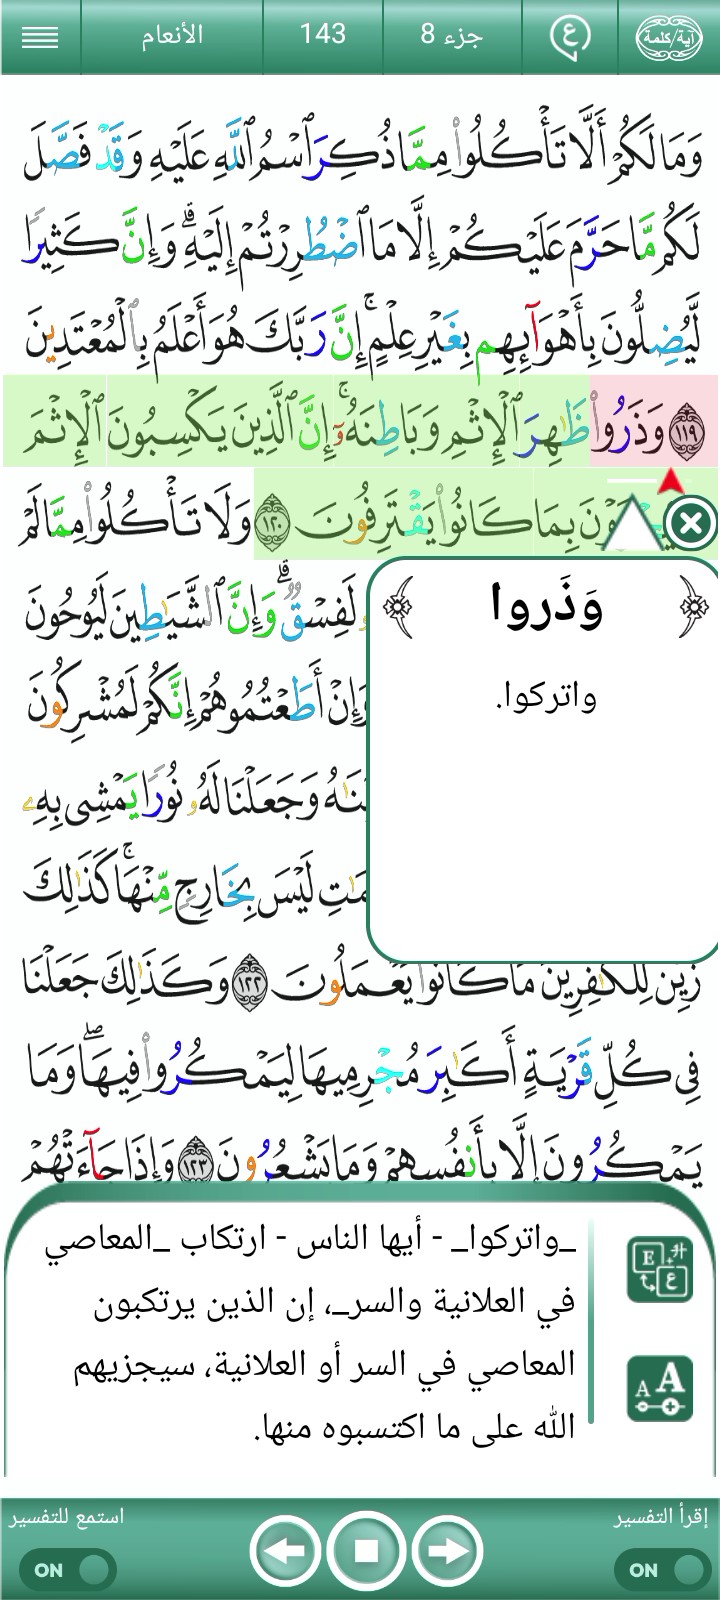 آية/كلمة
ع
جزء 8
143
الأنعام
وَمَا لَكُمْ أَلَّا تَأْكُلُوا۟ مِمَّا ذُكِرَ ٱسْمُ ٱللَّهِ عَلَيْهِ وَقَدْ فَصَّلَ
لَكُم مَّا حَرَّمَ عَلَيْكُمْ إِلَّا مَا ٱضْطُرِرْتُمْ إِلَيْهِ ۗ وَإِنَّ كَثِيرًا
لَّيُضِلُّونَ بِأَهْوَآئِهِم بِغَيْرِ عِلْمٍ ۚ إِنَّ رَبَّكَ هُوَ أَعْلَمُ بِٱلْمُعْتَدِينَ
١١٩ وَذَرُوا۟ ظَٰهِرَ ٱلْإِثْمِ وَبَاطِنَهُۥٓ ۚ إِنَّ ٱلَّذِينَ يَكْسِبُونَ ٱلْإِثْمَ
بِمَا كَانُوا۟ يَقْتَرِفُونَ ١٢٠ وَلَا تَأْكُلُوا۟ مِمَّا لَمْ
لَفِسْقٌ ۗ وَإِنَّ ٱلشَّيَٰطِينَ لَيُوحُونَ
وَإِنْ أَطَعْتُمُوهُمْ إِنَّكُمْ لَمُشْرِكُونَ
وَجَعَلْنَا لَهُۥ نُورًا يَمْشِى بِهِۦ
لَيْسَ بِخَارِجٍ مِّنْهَا ۚ كَذَٰلِكَ
زُيِّنَ لِلْكَٰفِرِينَ مَا كَانُوا۟ يَعْمَلُونَ ١٢٢ وَكَذَٰلِكَ جَعَلْنَا
فِى كُلِّ قَرْيَةٍ أَكَٰبِرَ مُجْرِمِيهَا لِيَمْكُرُوا۟ فِيهَا ۖ وَمَا
يَمْكُرُونَ إِلَّا بِأَنفُسِهِمْ وَمَا يَشْعُرُونَ ١٢٣ وَإِذَا جَآءَتْهُمْ
وَذَروا
واتركوا.
_واتركوا_ - أيها الناس - ارتكاب _المعاصي
في العلانية والسر_، إن الذين يرتكبون
المعاصي في السر أو العلانية، سيجزيهم
الله على ما اكتسبوه منها.
إقرأ التفسير
استمع للتفسير
ON
ON